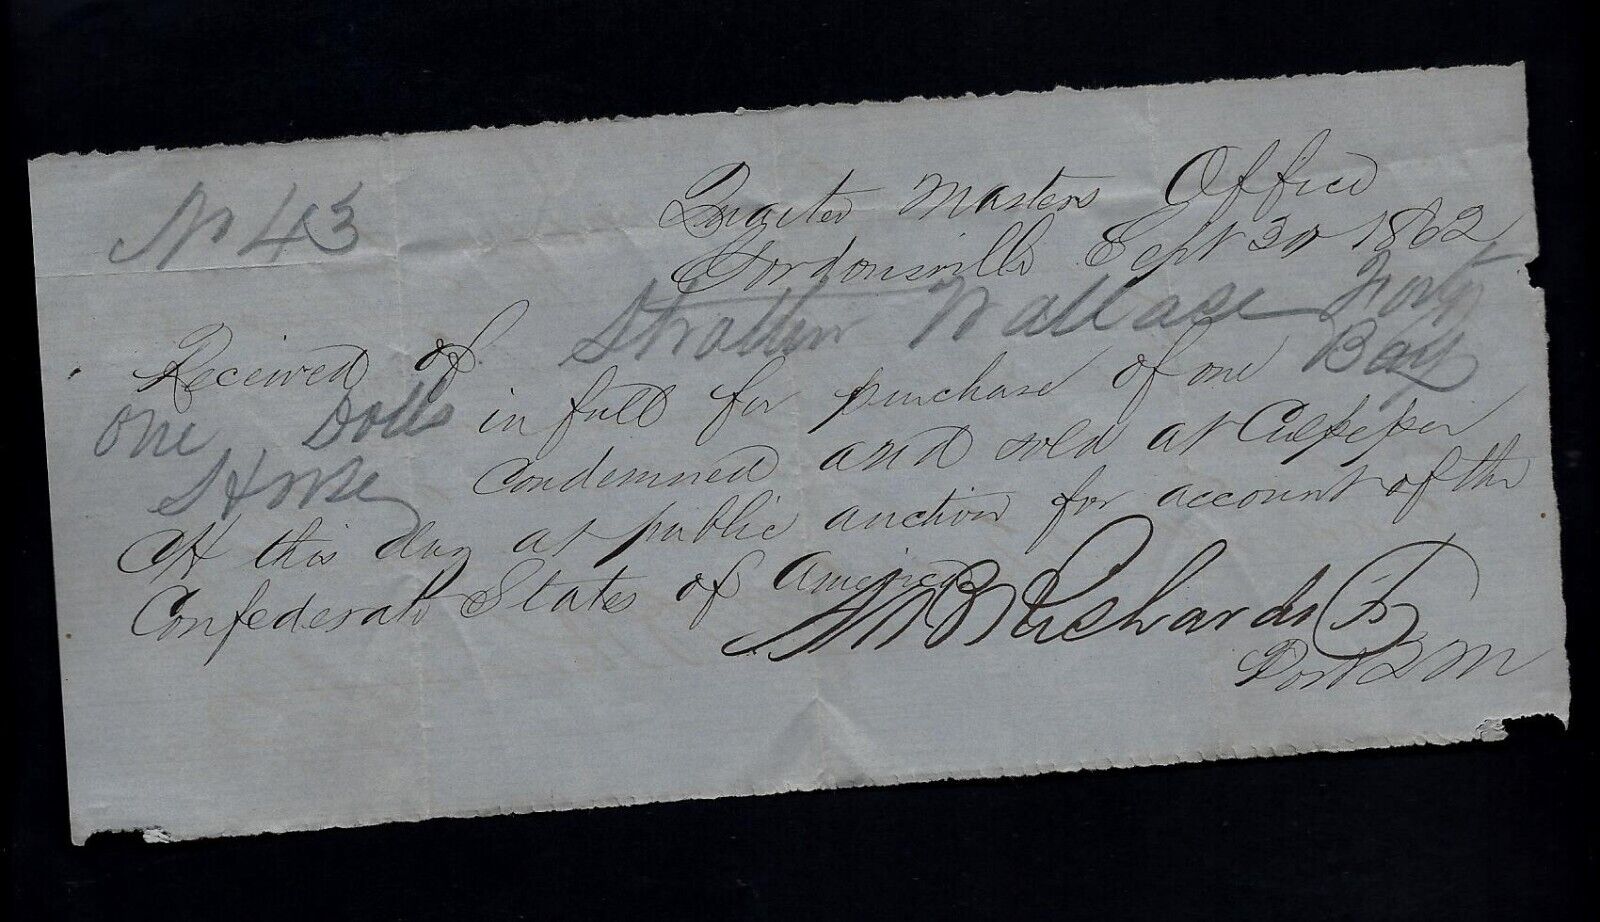 No 43
Quarter Masters Office
Gordonsville Sept 30 1862
Received of Wallace Forty
one Dolls in full for purchase of one Bay
Horse Condemned and sold at Culpeper
CH this day at public auction for account of the
Confederate States of America
Wm B Richards Jr
Post QM